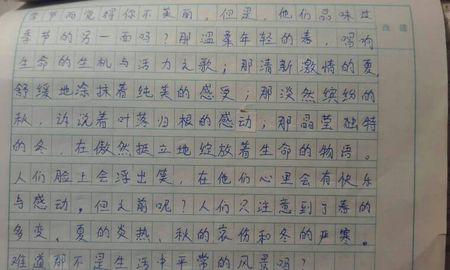 季节而觉得你不美丽，但是，他们品味过
季节的另一面吗？那温柔年轻的春，唱响
生命的生机与活力之歌；那清新激情的夏，
舒缓地涂抹着纯美的感受；那淡然缤纷的
秋，诉说着叶落归根的感动；那晶莹独特
的冬，在傲然挺立地绽放着生命的物语。
人们脸上会浮出笑，在他们心里会有快乐
与感动。但之前呢？人们只注意到了春的
多变、夏的炎热、秋的哀伤和冬的严寒。
难道那不是生活中平常的风景吗？